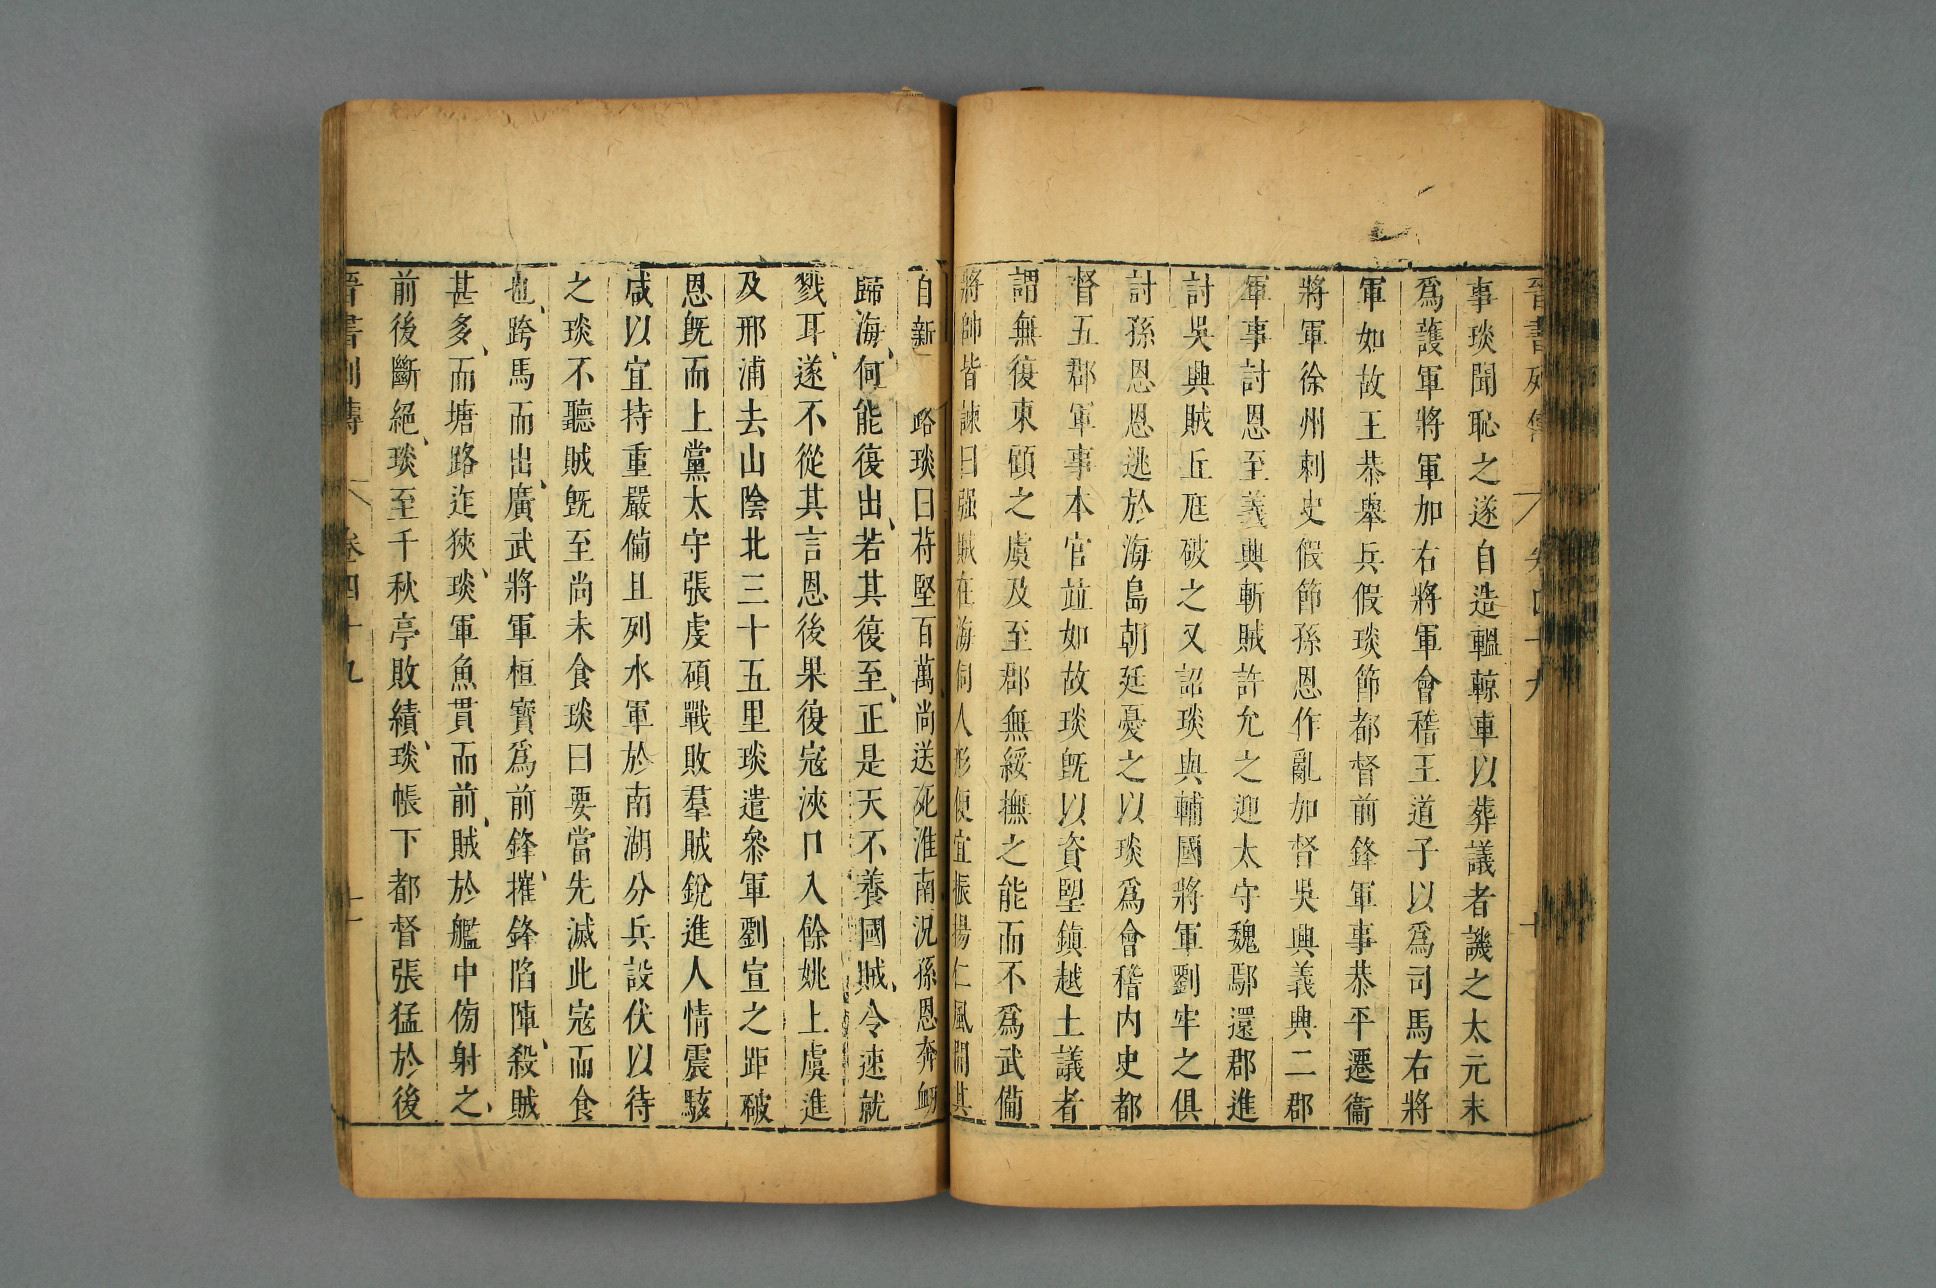 晉書列傳 卷四十九 十
事琰聞恥之遂自造轀輬車以葬議者譏之太元末
爲護軍將軍加右將軍會稽王道子以爲司馬右將
軍如故王恭舉兵假琰節都督前鋒軍事恭平遷衞
將軍徐州刺史假節孫恩作亂加督吳興義興二郡
軍事討恩至義興斬賊許允之迎太守魏鄢還郡進
討吳興賊丘尫破之又詔琰與輔國將軍劉牢之俱
討孫恩恩逃於海島朝廷憂之以琰爲會稽內史都
督五郡軍事本官竝如故琰旣以資朢鎮越土議者
謂無復東顧之虞及至郡無綏撫之能而不爲武備
將帥皆諫曰强賊在海伺人形便宜振揚仁風開其
自新 路琰曰苻堅百萬尚送死淮南況孫恩奔衂
歸海何能復出若其復至正是天不養國賊令速就
戮耳遂不從其言恩後果復宼浹口入餘姚上虞進
及邢浦去山陰北三十五里琰遣參軍劉宣之距破
恩旣而上黨太守張虔碩戰敗羣賊銳進人情震駭
咸以宜持重嚴備且列水軍於南湖分兵設伏以待
之琰不聽賊旣至尚未食琰曰要當先滅此宼而食
也跨馬而出廣武將軍桓寶爲前鋒摧鋒陷陣殺賊
甚多而塘路迮狹琰軍魚貫而前賊於艦中傍射之
前後斷絕琰至千秋亭敗績琰帳下都督張猛於後
晉書列傳 卷四十九 十一